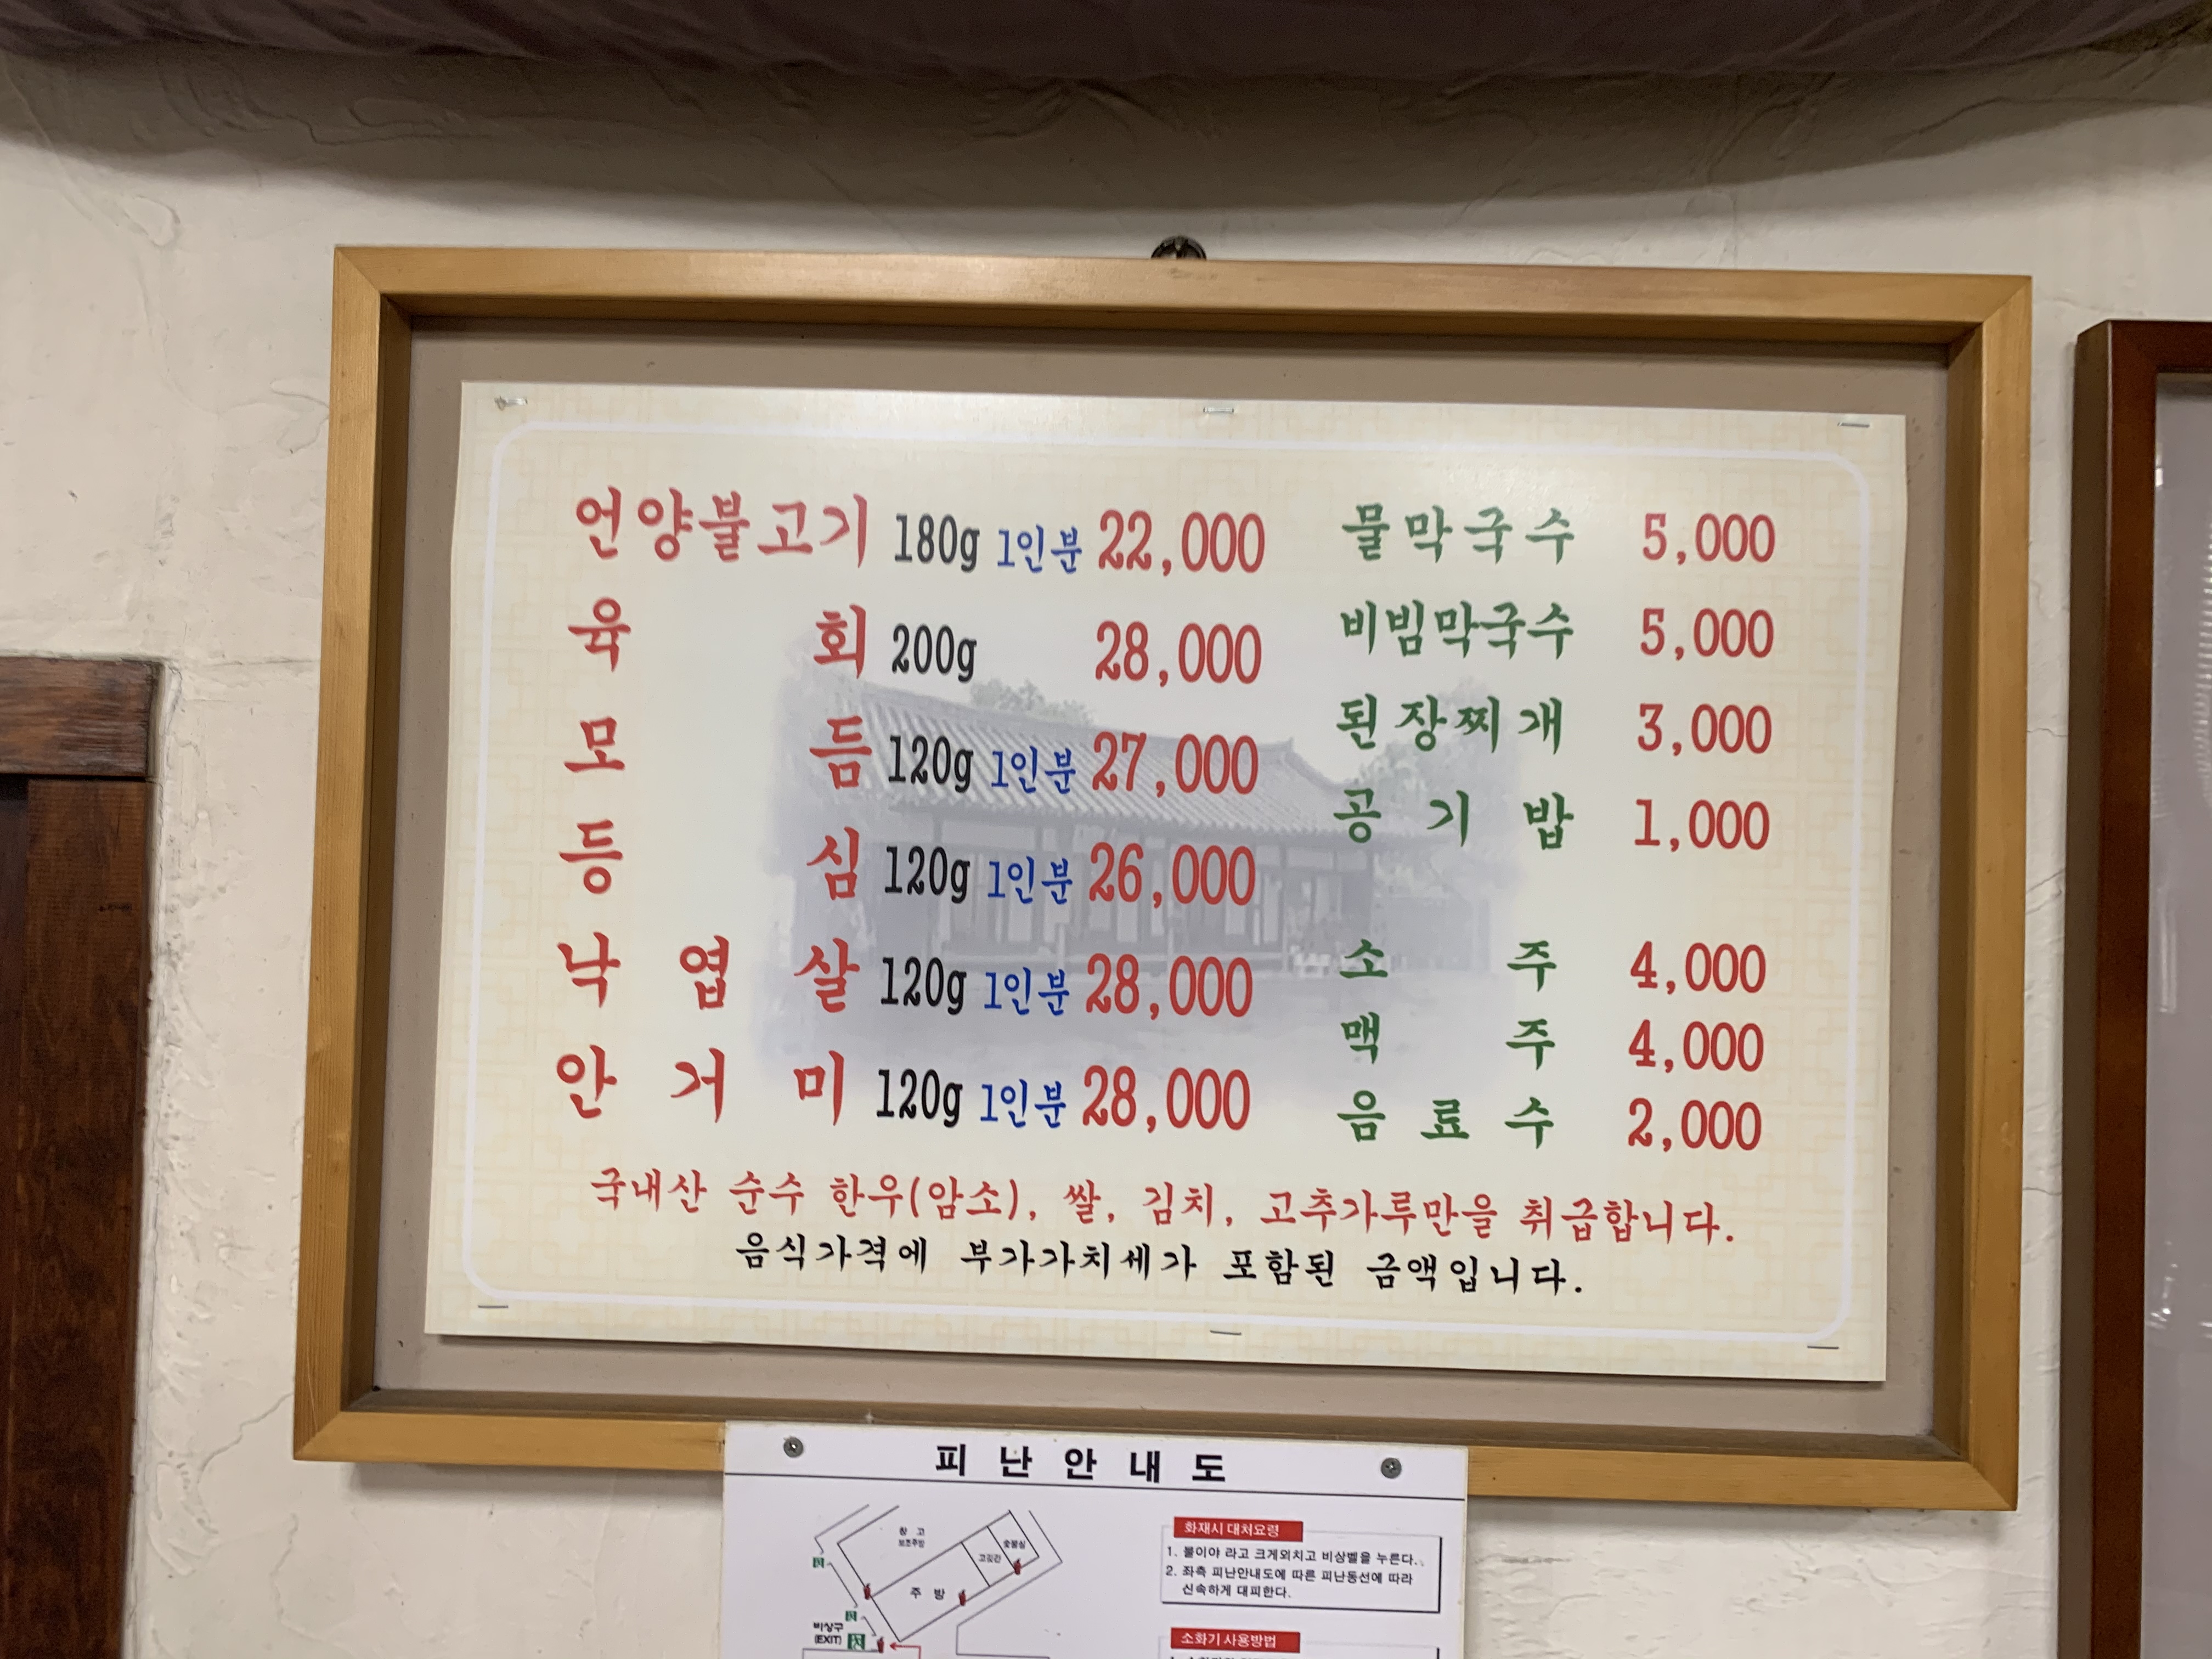 언양불고기 180g 1인분 22,000
육회 200g 28,000
모듬 120g 1인분 27,000
등심 120g 1인분 26,000
낙엽살 120g 1인분 28,000
안거미 120g 1인분 28,000
물막국수 5,000
비빔막국수 5,000
된장찌개 3,000
공기밥 1,000
소주 4,000
맥주 4,000
음료수 2,000
국내산 순수 한우(암소), 쌀, 김치, 고추가루만을 취급합니다.
음식가격에 부가가치세가 포함된 금액입니다.
피난안내도
창고
보조주방
고깃간
숯불실
주방
비상구
(EXIT)
화재시 대처요령
1. 불이야 라고 크게외치고 비상벨을 누른다.
2. 좌측 피난안내도에 따른 피난동선에 따라
신속하게 대피한다.
소화기 사용방법